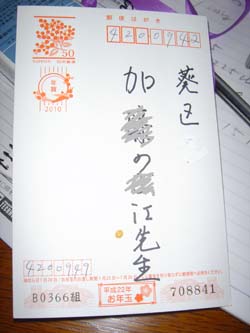 郵便はがき
50
4200942
年賀
2010
葵区
加の江先生
4200949
B0366組
平成22年
お年玉
708841